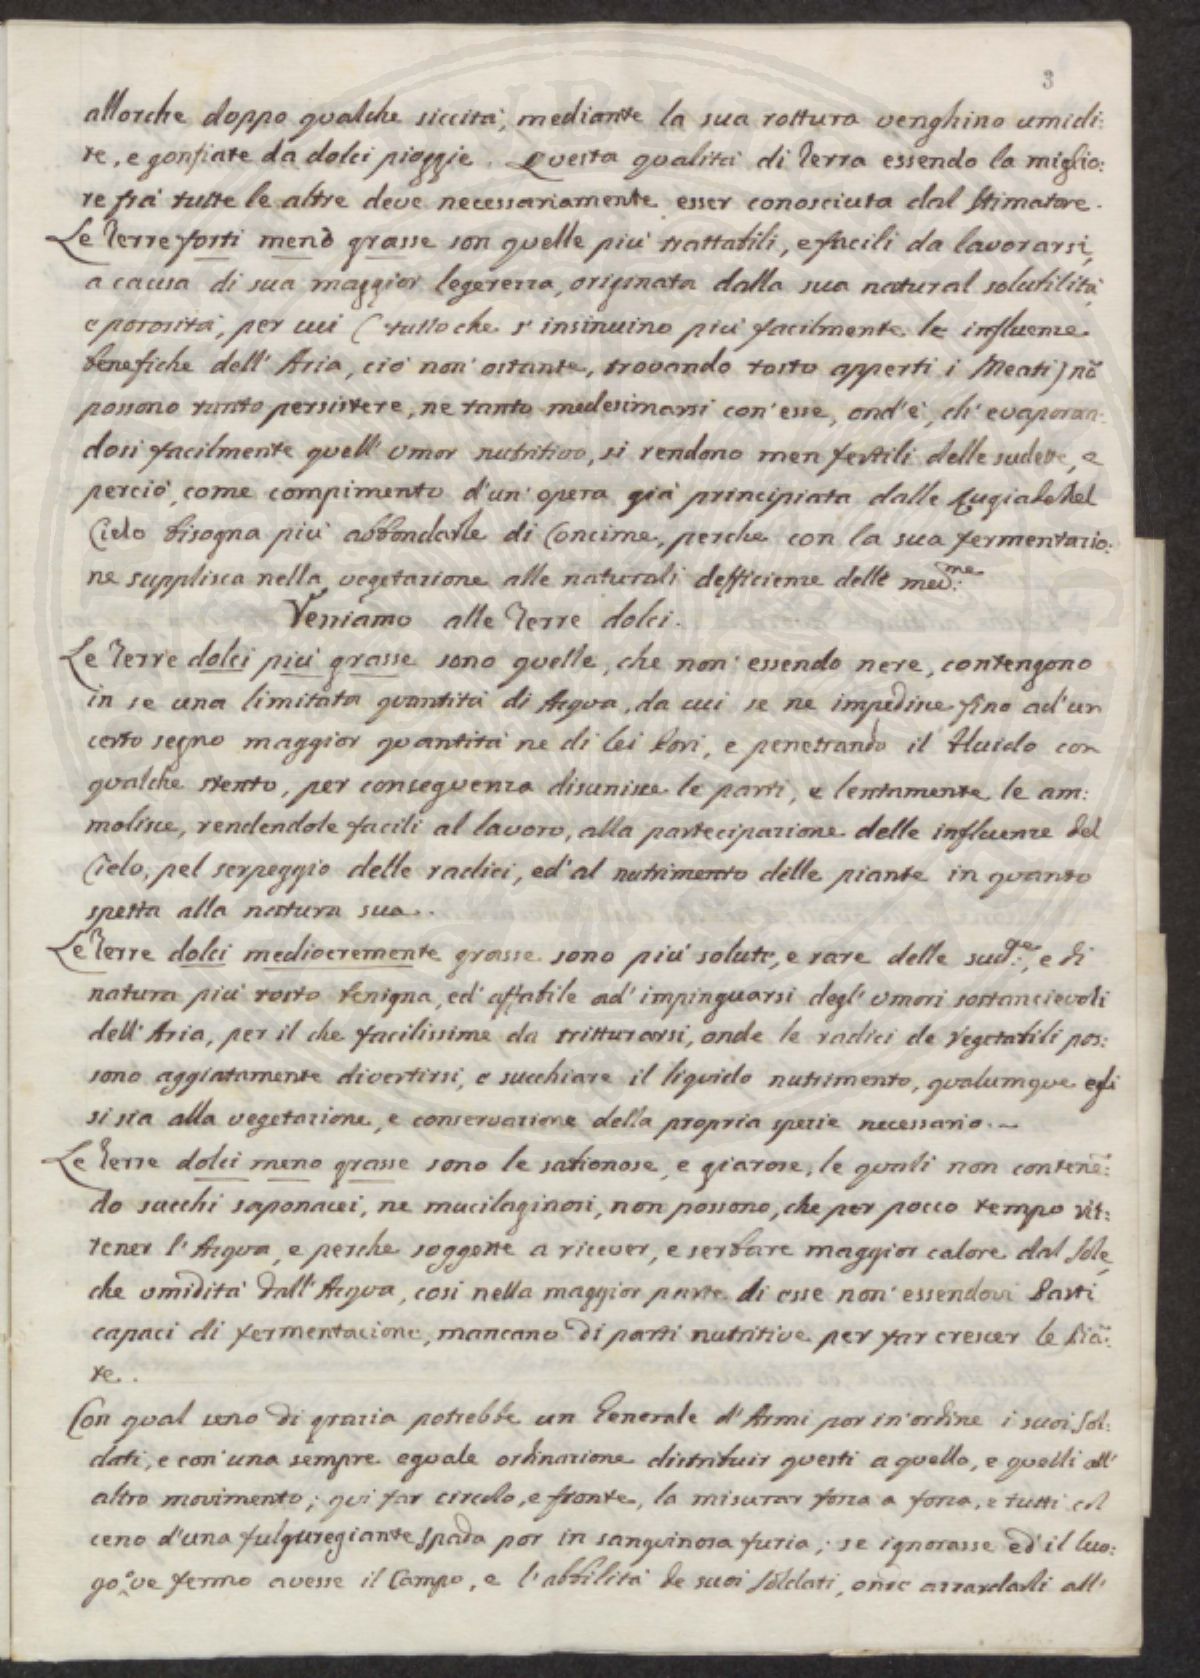 3
allorche doppo qualche siccità, mediante la sua rottura venghino umidi:
te, e gonfiate da dolci pioggie. Questa qualità di Terra essendo la miglio:
re frà tutte le altre deve necessariamente esser conosciuta dal Stimatore.
Le Terre forti meno grasse son quelle più trattabili, e facili da lavorarsi,
a causa di sua maggior legerezza, originata dalla sua natural solubilità,
e porosità, per cui (tuttoche s'insinuino più facilmente le influenze
benefiche dell'Aria, ciò non'ostante, trovando tosto apperti i Meati) nõ
possono tanto persistere, ne tanto medesimarsi con'esse, ond'è, ch'evaporan:
dosi facilmente quell'umor nutritivo, si rendono men fertili delle sudette, e
perciò, come compimento d'un'opera già principiata dalle Rugiade del
Cielo bisogna più abbondarle di Concime, perche con la sua fermentazio:
ne supplisca nella vegetazione alle naturali defficienze delle med:me
Veniamo alle Terre dolci.
Le Terre dolci più grasse sono quelle, che non'essendo nere, contengono
in se una limitata quantità di Acqua, da cui se ne impedisce fino ad'un
certo segno maggior quantità ne di lei Pori, e penetrando il Fluido con
qualche stento, per conseguenza disunisce le parti, e lentamente le am:
molisce, rendendole facili al lavoro, alla partecipazione delle influenze del
Cielo, pel serpeggio delle radici, ed'al nutrimento delle piante in quanto
spetta alla natura sua.
Le Terre dolci mediocremente grasse sono più solute, e rare delle sud:te, e di
natura più tosto benigna, ed'affabile ad'impinguarsi degl'umori sostancievoli
dell'Aria, per il che facilissime da tritturarsi, onde le radici de Vegetabili pos:
sono aggiatamente divertirsi, e succhiare il liquido nutrimento, qualumque egli
si sia alla vegetazione, e conservazione della propria spezie necessario.
Le Terre dolci meno grasse sono le sabionose, e giarose, le quali non contenẽ:
do succhi saponacei, ne mucilaginosi, non possono, che per pocco tempo rit:
tener l'Acqua, e perche soggette a ricever, e serbare maggior calore dal Sole,
che umidità dall'Acqua, così nella maggior parte di esse non'essendovi Parti
capaci di fermentacione, mancano di parti nutritive per far crescer le Piã:
te.
Con qual seno di grazia potrebbe un Generale d'Armi por in'ordine i suoi Sol:
dati, e con'una sempre eguale ordinazione distribuir questi a quello, e quelli all'
altro movimento; qui far circolo, e fronte, la misurar forza a forza, e tutti col
ceno d'una fulgureggiante Spada por in sanguinosa furia; se ignorasse ed'il luo:
go ove fermo avesse il Campo, e l'abbilità de suoi Soldati, onde azzardarli all'